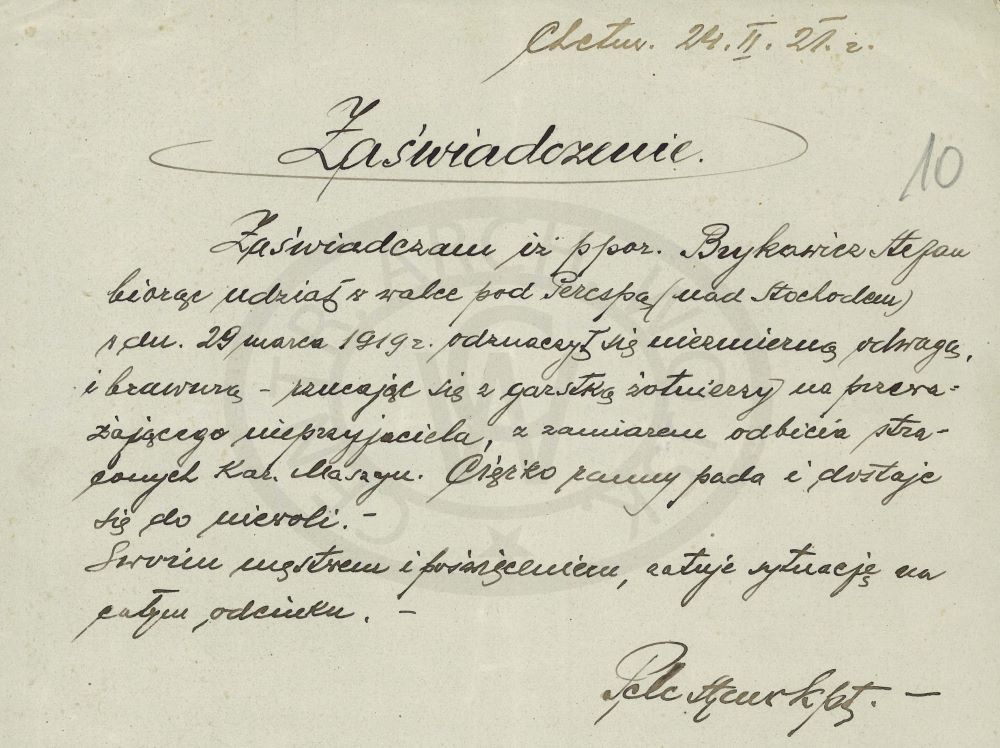 24. II. 21. r.
Zaświadczenie.
10
Zaświadczam iż ppor. Brykowicz Stefan
biorąc udział w walce pod Perespą (nad Stochodem)
w dn. 29 marca 1919 r. odznaczył się niezmierną odwagą,
i brawurą - rzucając się z garstką żołnierzy na przewa-
żającego nieprzyjaciela, z zamiarem odbicia stra-
conych Kar. Maszyn. Ciężko ranny pada i dostaje
się do niewoli. -
Swoim męstwem i poświęceniem, ratuje sytuację na
całym odcinku. -
kpt. -